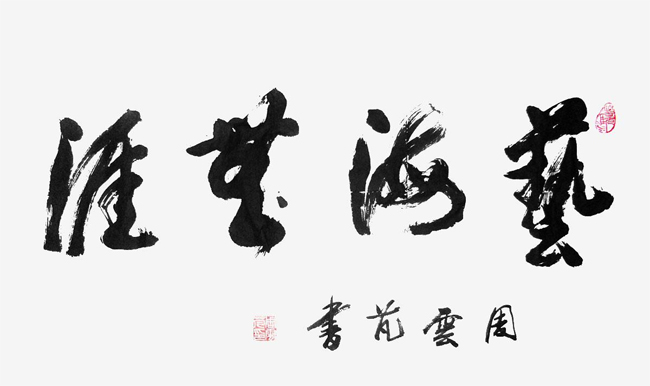 藝海無涯
周雲芃書